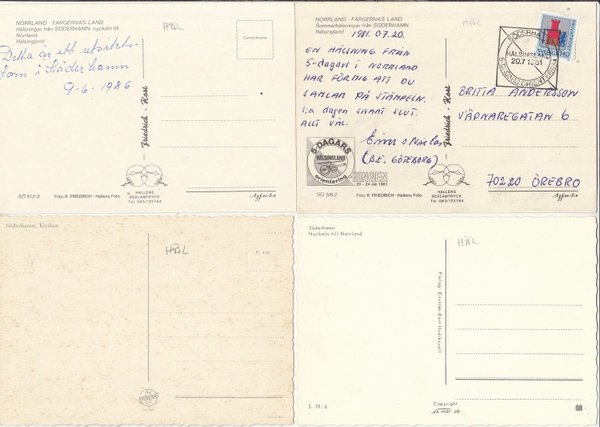 NORRLAND - FÄRGERNAS LAND
Hälsningar från SÖDERHAMN -nyckeln till
Norrland.
Hälsingland
HÄL
Detta är ett utsikts-
torn i Söderhamn
9-6-1986
Friedrich - Kort
HALLENS
REKLAMTRYCK
Tel 063/123784
SÖ 512-3
Foto: R. FRIEDRICH - Hallens Foto
NORRLAND - FÄRGERNAS LAND
Sommarhälsningar från SÖDERHAMN.
Hälsingland
HÄL
1981.07.20.
EN HÄLSNING FRÅN
5-dagars I NORRLAND
HAR FÖRMIG ATT DU
SAMLAR PÅ STÄMPELN.
1:a dagen snart slut.
ALLT VÄL.
(B.E. GÖTEBORG)
SÖDERHAMN
HÄLSINGLAND
20.7.1981
BRITTA ANDERSSON
VÄPNAREGATAN 6
70220 ÖREBRO
5-DAGARS
HÄLSINGLAND
orientering
RINGEN
20 - 24 juli 1981
Friedrich - Kort
HALLENS
REKLAMTRYCK
Tel 063/123784
SÖ 516-2
Foto: R. FRIEDRICH - Hallens Foto
Söderhamn. Kyrkan
HÄL
F. 117
Söderhamn
Nyckeln till Norrland
HÄL
L 19/4
Copyright